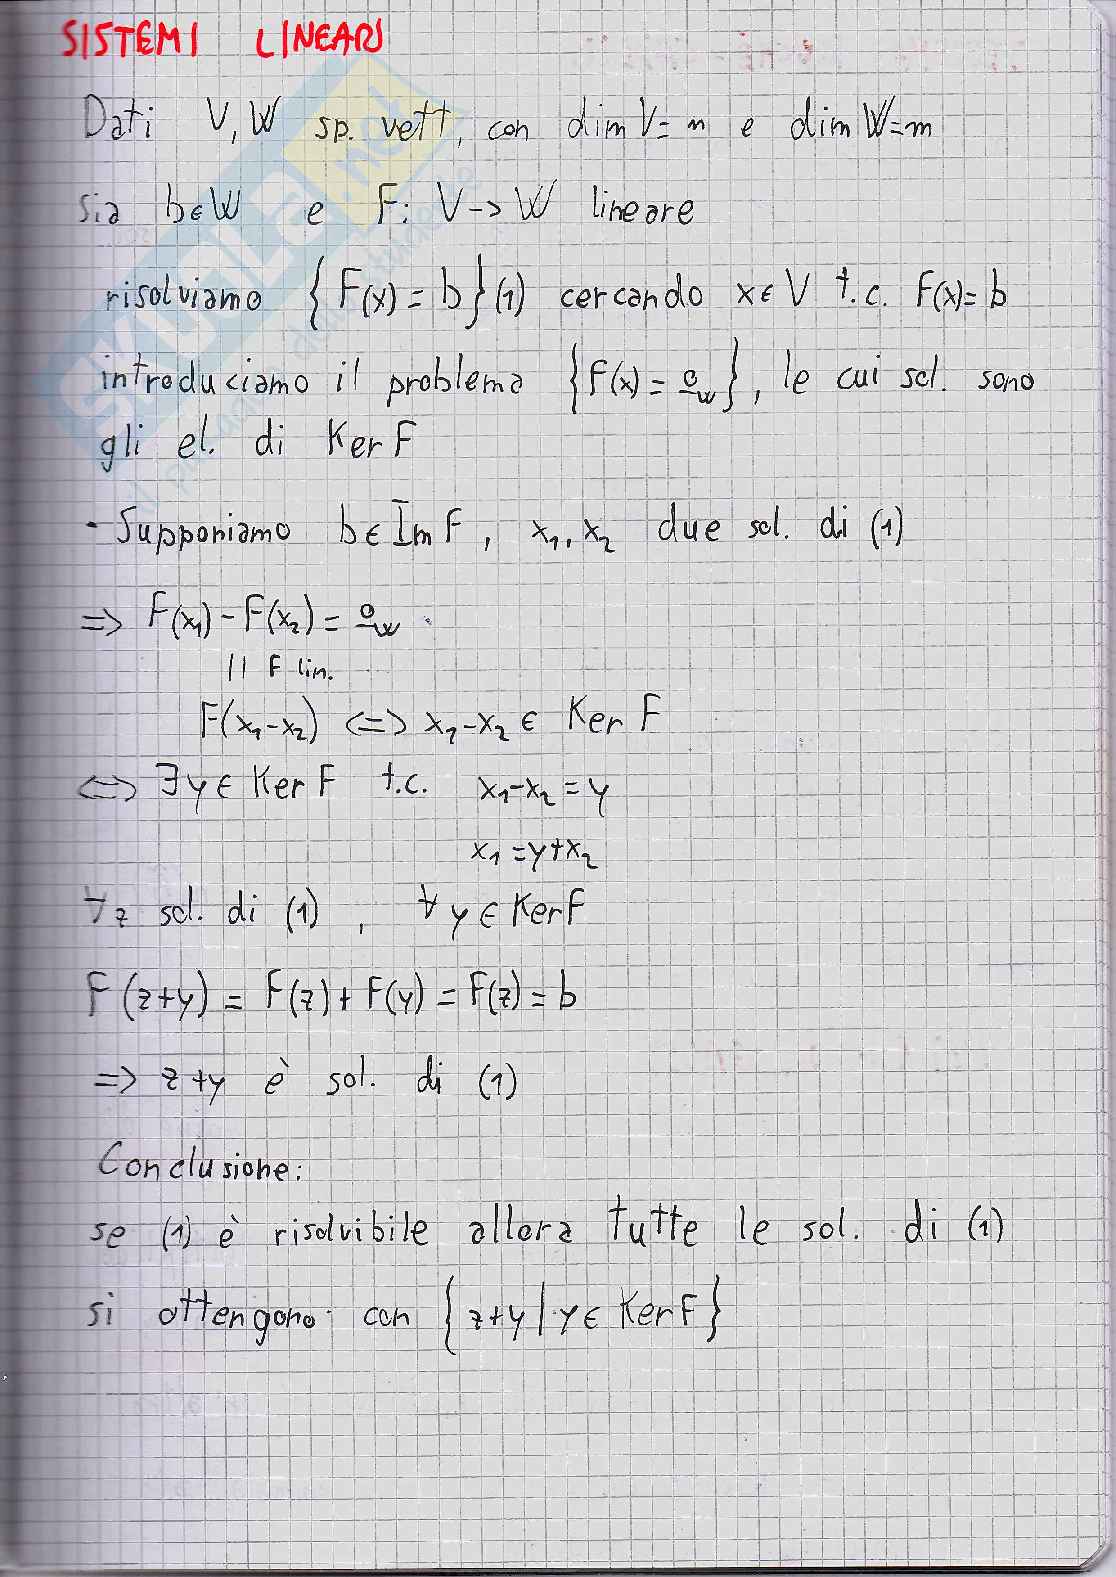 SISTEMI LINEARI
Dati V, W sp. vett, con dim V = n e dim W = m
sia b ∈ W e F: V -> W lineare
risolviamo {F(x) = b} (1) cercando x ∈ V t.c. F(x) = b
introduciamo il problema {F(x) = 0_W}, le cui sol. sono
gli el. di Ker F
- Supponiamo b ∈ Im F, x₁, x₂ due sol. di (1)
=> F(x₁) - F(x₂) = 0_W
|| F lin.
F(x₁-x₂) <=> x₁-x₂ ∈ Ker F
<=> ∃ y ∈ Ker F t.c. x₁-x₂ = y
x₁ = y+x₂
∀ z sol. di (1), ∀ y ∈ Ker F
F(z+y) = F(z) + F(y) = F(z) = b
=> z+y è sol. di (1)
Conclusione:
se (1) è risolvibile allora tutte le sol. di (1)
si ottengono con {z+y | y ∈ Ker F}
SKUOLA.net